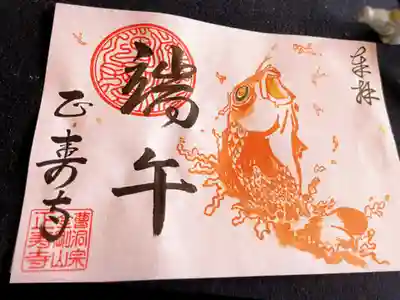 奉拝
端午
正寿寺
曹洞宗
剛山
正寿寺